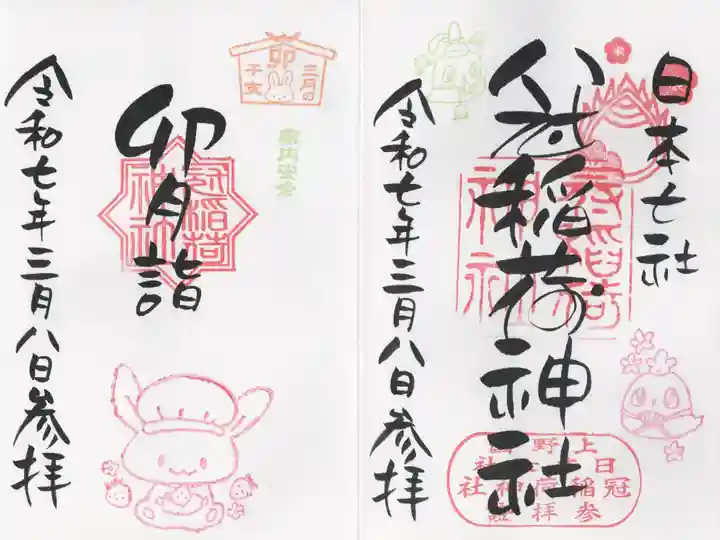 日本七社
冠稲荷神社
令和七年三月八日参拝
上野
冠稲荷神社
参拝
卯
三月の
干支
家内安全
卯月詣
冠稲荷
神社
令和七年三月八日参拝